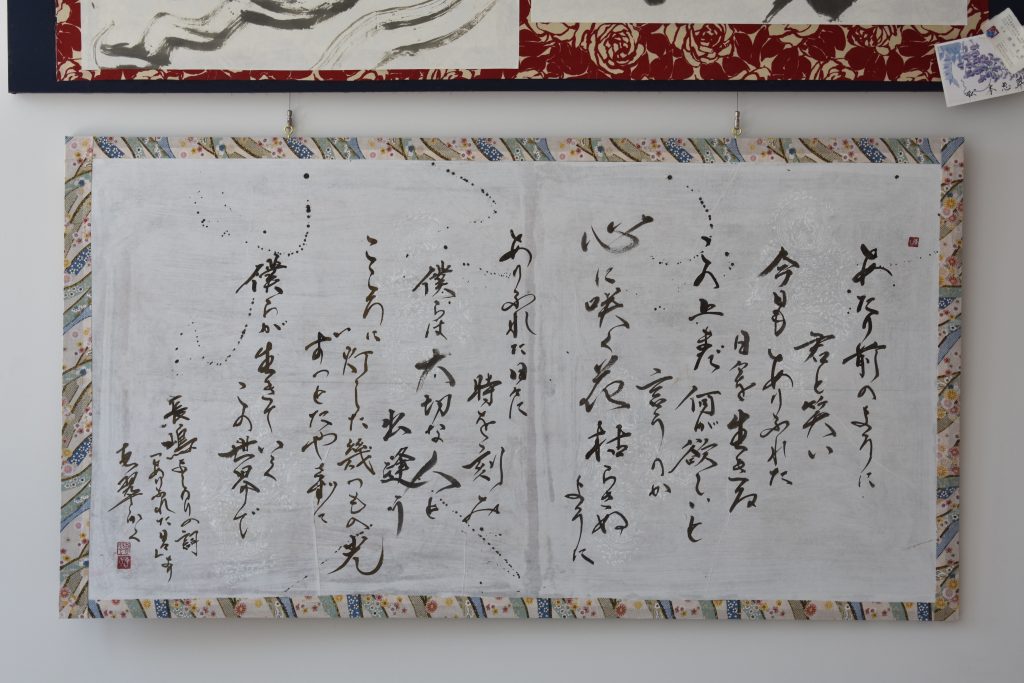 あたり前のように
君と笑い
今日もありふれた
日常を生きる
この上まだ何が欲しいと
言うのか
心に咲く花枯らさぬ
ように
ありふれた日々に
時を刻み
僕らは大切な人と
出逢う
こころに灯した幾つもの光
ずっとたやさずに
僕らが生きていく
この世界で
の詩
かく